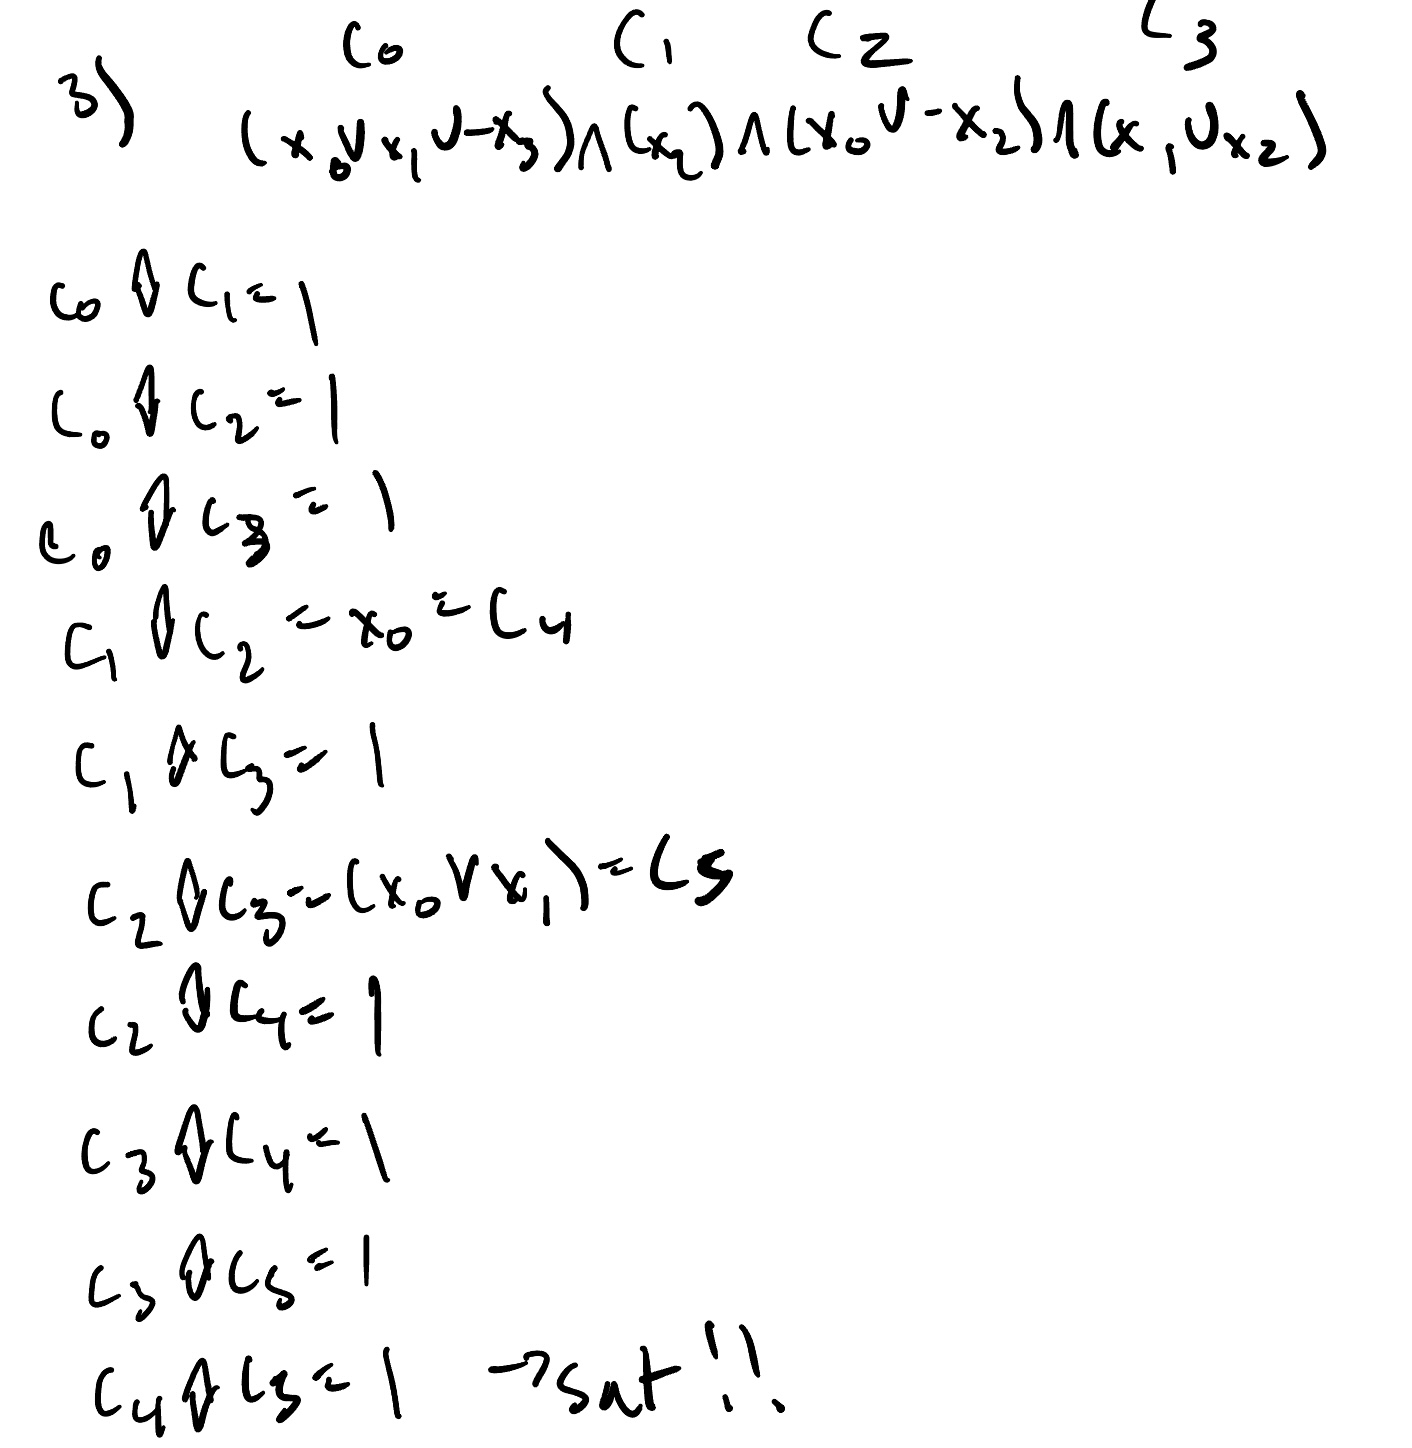 C0 C1 C2 C3
3) (x0 ∨ x1 ∨ -x3) ∧ (x2) ∧ (x0 ∨ -x2) ∧ (x1 ∨ x2)
C0 ◊ C1 = 1
C0 ◊ C2 = 1
C0 ◊ C3 = 1
C1 ◊ C2 = x0 = C4
C1 ◊ C3 = 1
C2 ◊ C3 = (x0 ∨ x1) = C5
C2 ◊ C4 = 1
C3 ◊ C4 = 1
C3 ◊ C5 = 1
C4 ◊ C5 = 1 → sat!!